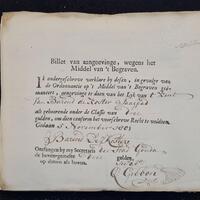 Billet van aangeevinge, wegens het
Middel van 't Begraven.
Ik ondergeschreve verklare by desen, in gevolge van
de Ordonnantie op 't Middel van 't Begraven geë-
maneert, aengevinge te doen van het Lyk van 't Kint
van Barend de Koster
als gehoorende onder de Classis van drie
gulden, om dien conform het voorschreve Recht te voldoen.
Gedaan 5 November
Barend de Koster
Ontfangen by my Secretaris der Stad Gouda
de bovengemelde drie gulden,
op dheten als boven.